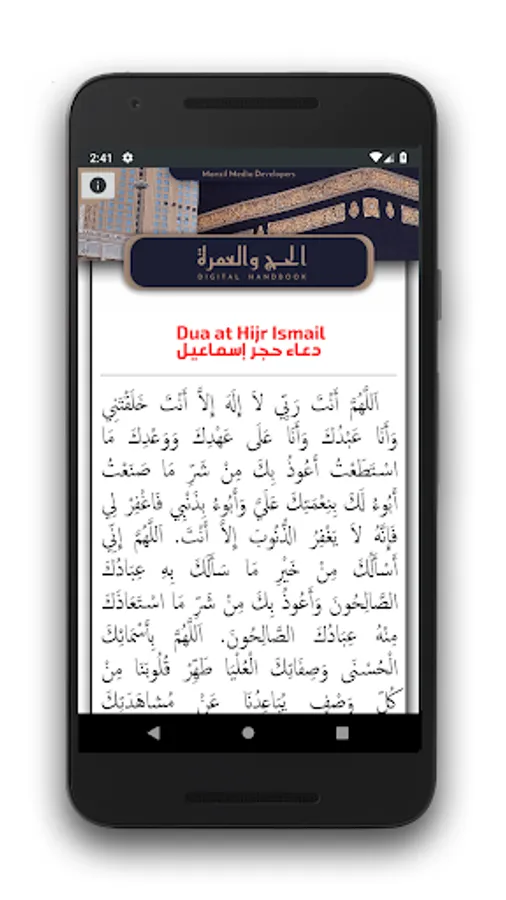 2:41
Manzil Media Developers
الحج والعمرة
DIGITAL HANDBOOK
Dua at Hijr Ismail
دعاء حجر إسماعيل
اَللَّهُمَّ أَنْتَ رَبِّي لاَ إِلَهَ إِلاَّ أَنْتَ خَلَقْتَنِي
وَأَنَا عَبْدُكَ وَأَنَا عَلَى عَهْدِكَ وَوَعْدِكَ مَا
اسْتَطَعْتُ أَعُوذُ بِكَ مِنْ شَرِّ مَا صَنَعْتُ
أَبُوءُ لَكَ بِنِعْمَتِكَ عَلَيَّ وَأَبُوءُ بِذَنْبِي فَاغْفِرْ لِي
فَإِنَّهُ لاَ يَغْفِرُ الذُّنُوبَ إِلاَّ أَنْتَ. اَللَّهُمَّ إِنِّي
أَسْأَلُكَ مِنْ خَيْرِ مَا سَأَلَكَ بِهِ عِبَادُكَ
الصَّالِحُونَ وَأَعُوذُ بِكَ مِنْ شَرِّ مَا اسْتَعَاذَكَ
مِنْهُ عِبَادُكَ الصَّالِحُونَ. اَللَّهُمَّ بِأَسْمَائِكَ
الْحُسْنَى وَصِفَاتِكَ الْعُلْيَا طَهِّرْ قُلُوبَنَا مِنْ
كُلِّ وَصْفٍ يُبَاعِدُنَا عَنْ مُشَاهَدَتِكَ